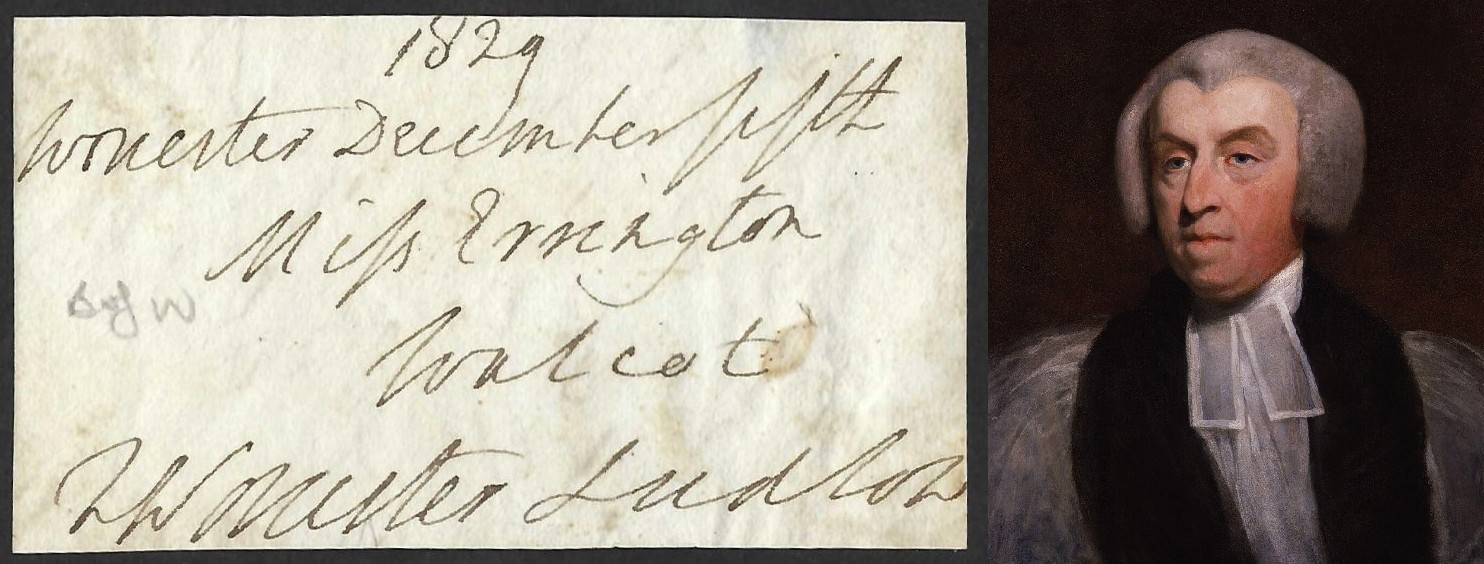 1829
Worcester December fifth
Miss Errington
Walcot
B of W
F Worcester Ludlow